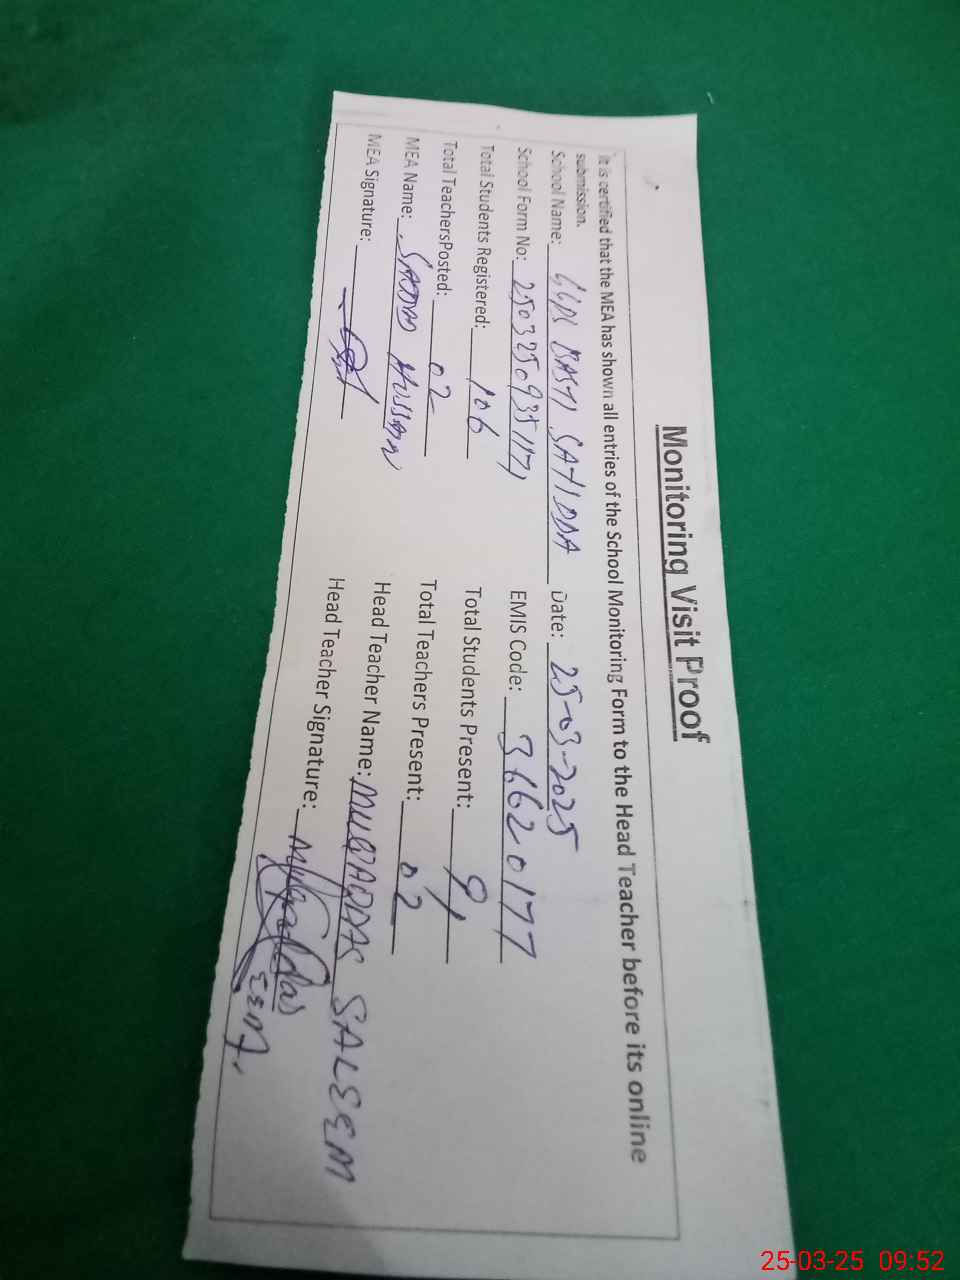 Monitoring Visit Proof
It is certified that the MEA has shown all entries of the School Monitoring Form to the Head Teacher before its online
submission.
School Name: GGPS BASTI SAHIDDA Date: 25-03-2025
School Form No: EMIS Code: 36620177
Total Students Registered: 106 Total Students Present: 91
Total TeachersPosted: 02 Total Teachers Present: 02
MEA Name: SADDAM HUSSAIN Head Teacher Name: MUQADDAS SALEEM
MEA Signature: Head Teacher Signature: Muqaddas
25-03-25 09:52